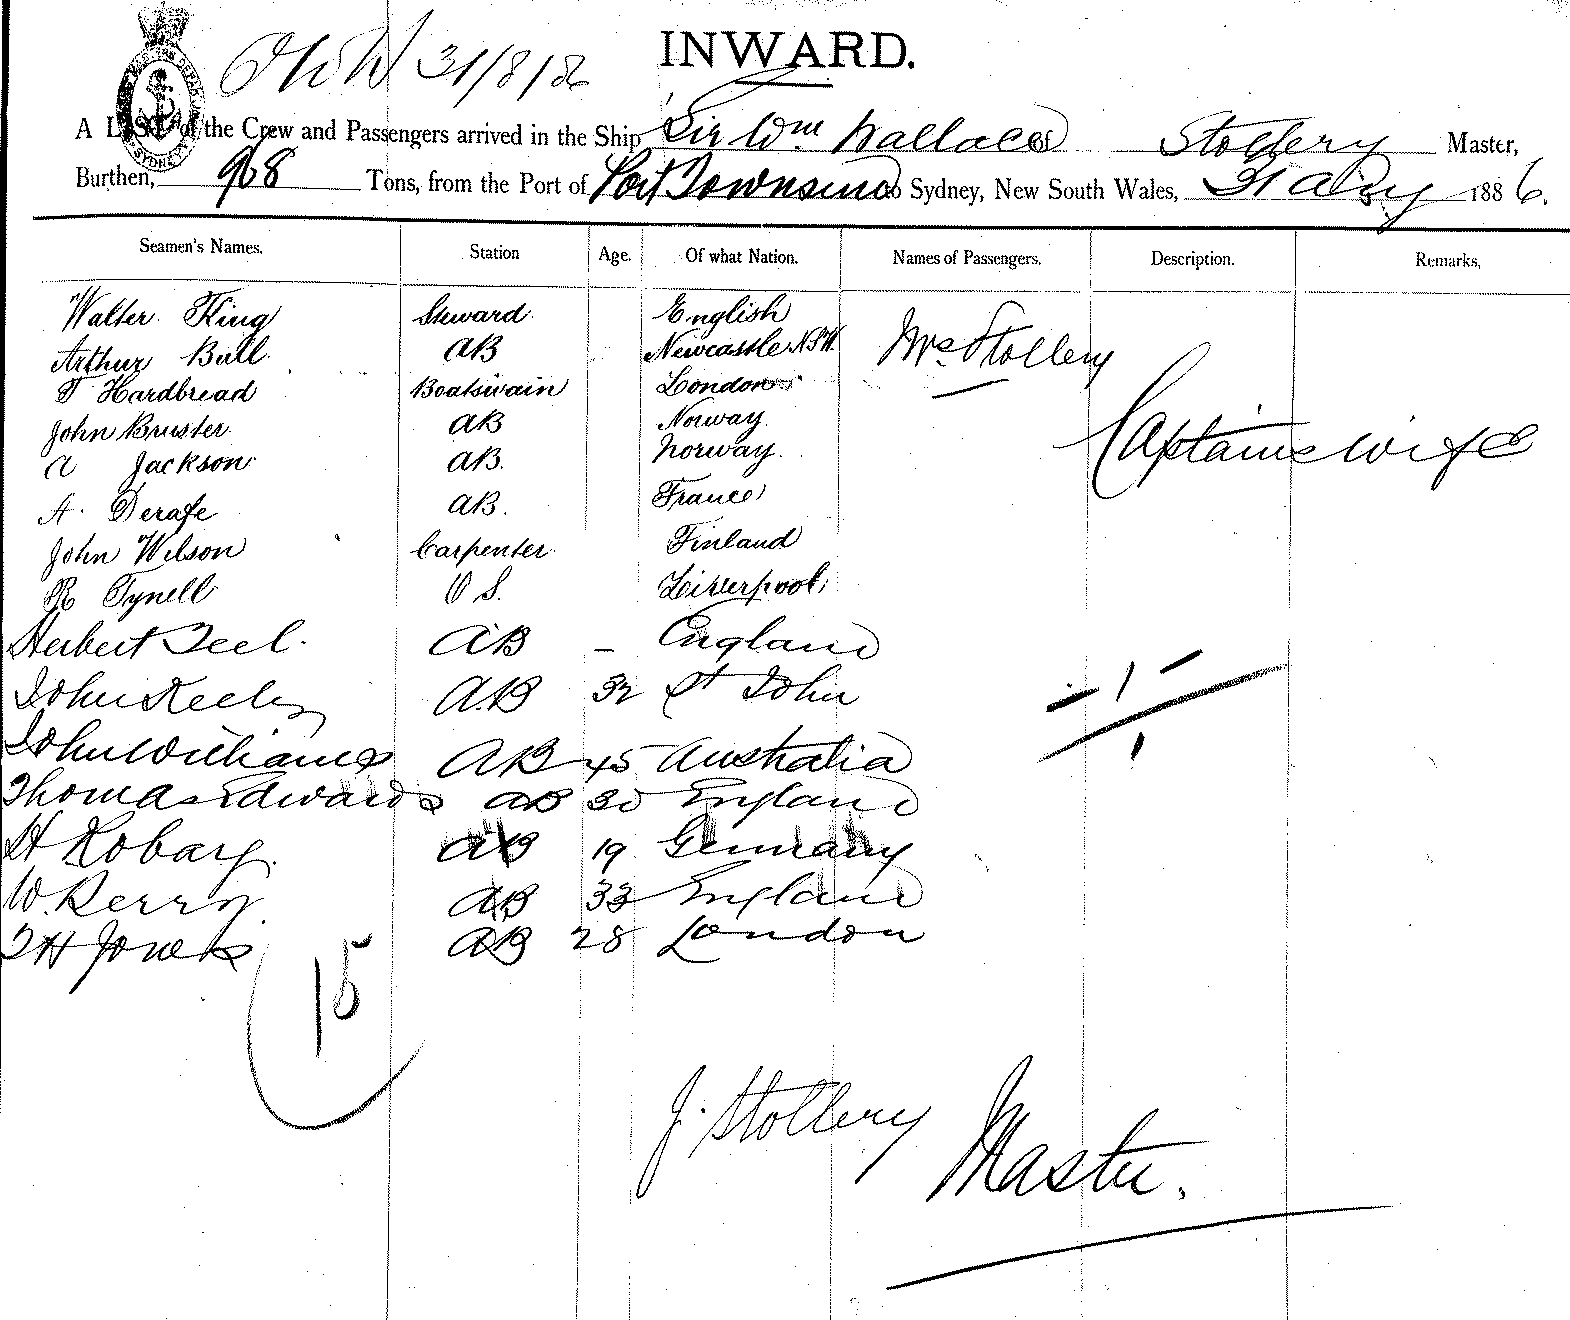 INWARD.
31/8/86
A LIST of the Crew and Passengers arrived in the Ship Sir Wm Wallace of Stollery Master,
Burthen, 968 Tons, from the Port of Port Townsend to Sydney, New South Wales, 31 Aug 1886.
Seamen's Names. Station Age. Of what Nation. Names of Passengers. Description. Remarks,
Walter King Steward English
Arthur Bull AB Newcastle NSW. Mrs Stollery
T Hardbread Boatswain London
Captains wife
John Bruster AB Norway
A Jackson AB. Norway.
A. Derafe AB. France
John Wilson Carpenter Finland
R Tynell O S. Liverpool
Herbert Teel. AB - England
John Keely AB 32 St John
1
1
John Williams AB 45 Australia
Thomas Edwards AB 30 England
H Kobarg. AB 19 Germany
W. Berry AB 33 England
T H Jones AB 28 London
15
J. Stollery Master.